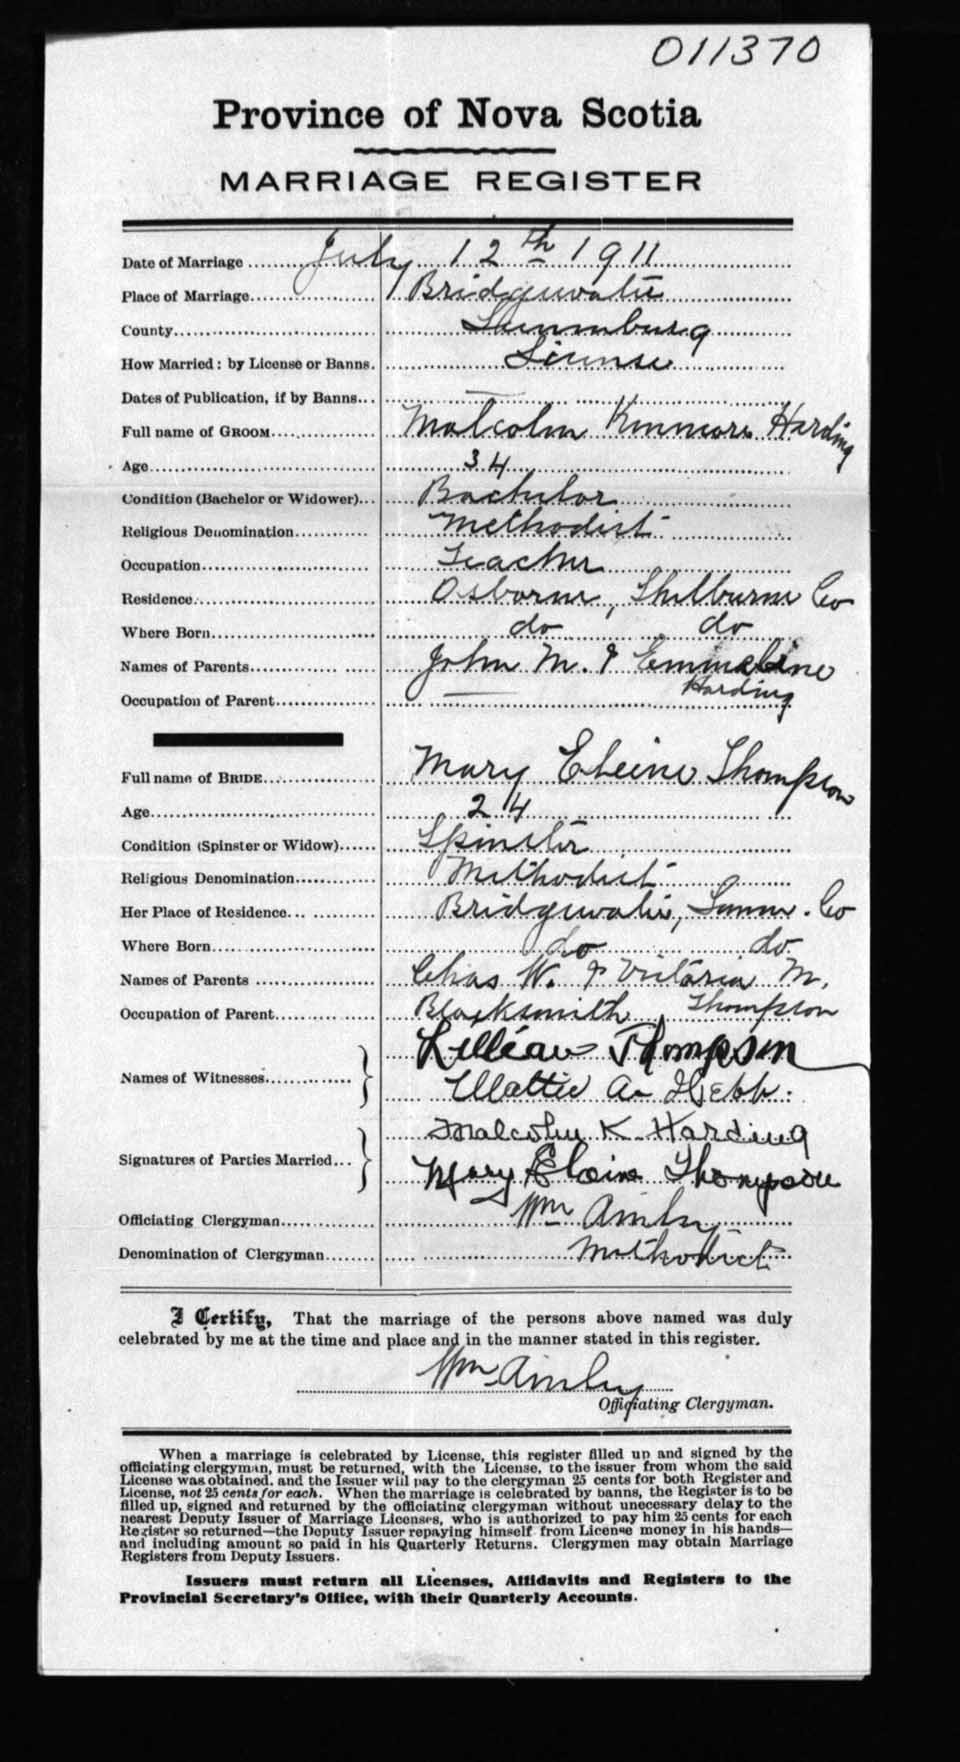 011370
Province of Nova Scotia
MARRIAGE REGISTER
Date of Marriage July 12th 1911
Place of Marriage Bridgewater
County Lunenburg
How Married: by License or Banns. License
Dates of Publication, if by Banns —
Full name of GROOM Malcolm Kinmore Harding
Age 34
Condition (Bachelor or Widower) Bachelor
Religious Denomination Methodist
Occupation Teacher
Residence Osborne, Shelburne Co
Where Born do do
Names of Parents John M. & Emmeline Harding
Occupation of Parent —
Full name of BRIDE Mary Eleine Thompson
Age 24
Condition (Spinster or Widow) Spinster
Religious Denomination Methodist
Her Place of Residence Bridgewater, Lunen. Co
Where Born do do
Names of Parents Chas W. & Victoria M. Thompson
Occupation of Parent Blacksmith
Names of Witnesses Lillian Thompson
Mattie A. Hebb.
Signatures of Parties Married Malcolm K Harding
Mary Elaine Thompson
Officiating Clergyman Wm Ainley
Denomination of Clergyman Methodist
I Certify, That the marriage of the persons above named was duly
celebrated by me at the time and place and in the manner stated in this register.
Wm Ainley
Officiating Clergyman.
When a marriage is celebrated by License, this register filled up and signed by the
officiating clergyman, must be returned, with the License, to the issuer from whom the said
License was obtained, and the Issuer will pay to the clergyman 25 cents for both Register and
License, not 25 cents for each. When the marriage is celebrated by banns, the Register is to be
filled up, signed and returned by the officiating clergyman without unnecessary delay to the
nearest Deputy Issuer of Marriage Licenses, who is authorized to pay him 25 cents for each
Register so returned—the Deputy Issuer repaying himself from License money in his hands—
and including amount so paid in his Quarterly Returns. Clergymen may obtain Marriage
Registers from Deputy Issuers.
Issuers must return all Licenses, Affidavits and Registers to the
Provincial Secretary's Office, with their Quarterly Accounts.